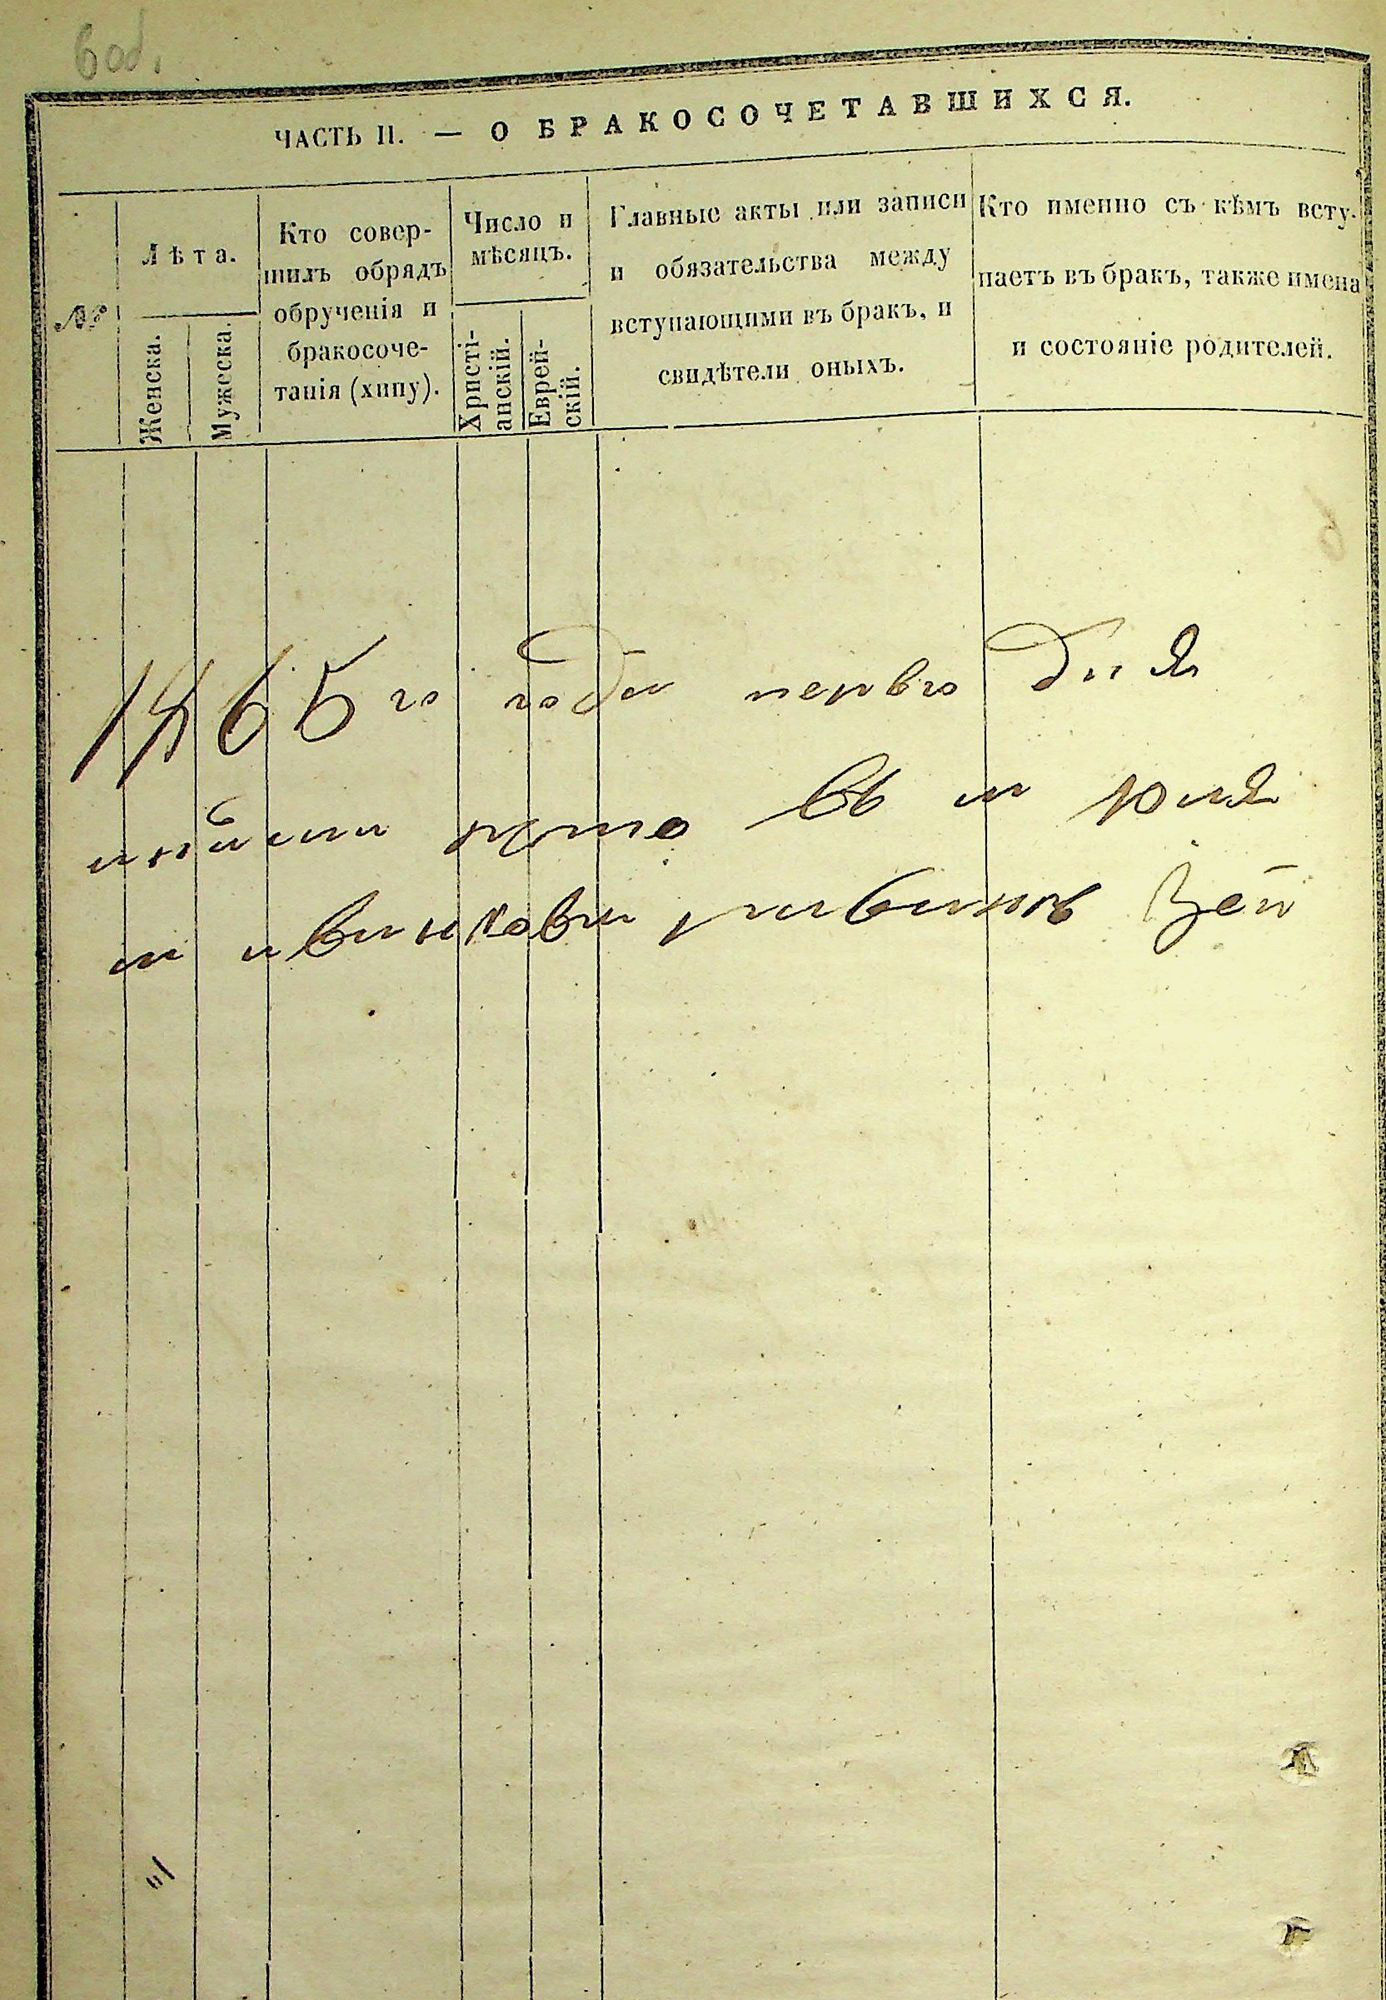 6 об.
ЧАСТЬ II. — О БРАКОСОЧЕТАВШИХСЯ.
№
Лѣта.
Женска.
Мужеска.
Кто совер-
шилъ обрядъ
обрученія и
бракосоче-
танія (хипу).
Число и
мѣсяцъ.
Христі-
анскій.
Еврей-
скій.
Главные акты или записи
и обязательства между
вступающими въ бракъ, и
свидѣтели оныхъ.
Кто именно съ кѣмъ всту-
паетъ въ бракъ, также имена
и состояніе родителей.
1865го года перваго Дня
въ м